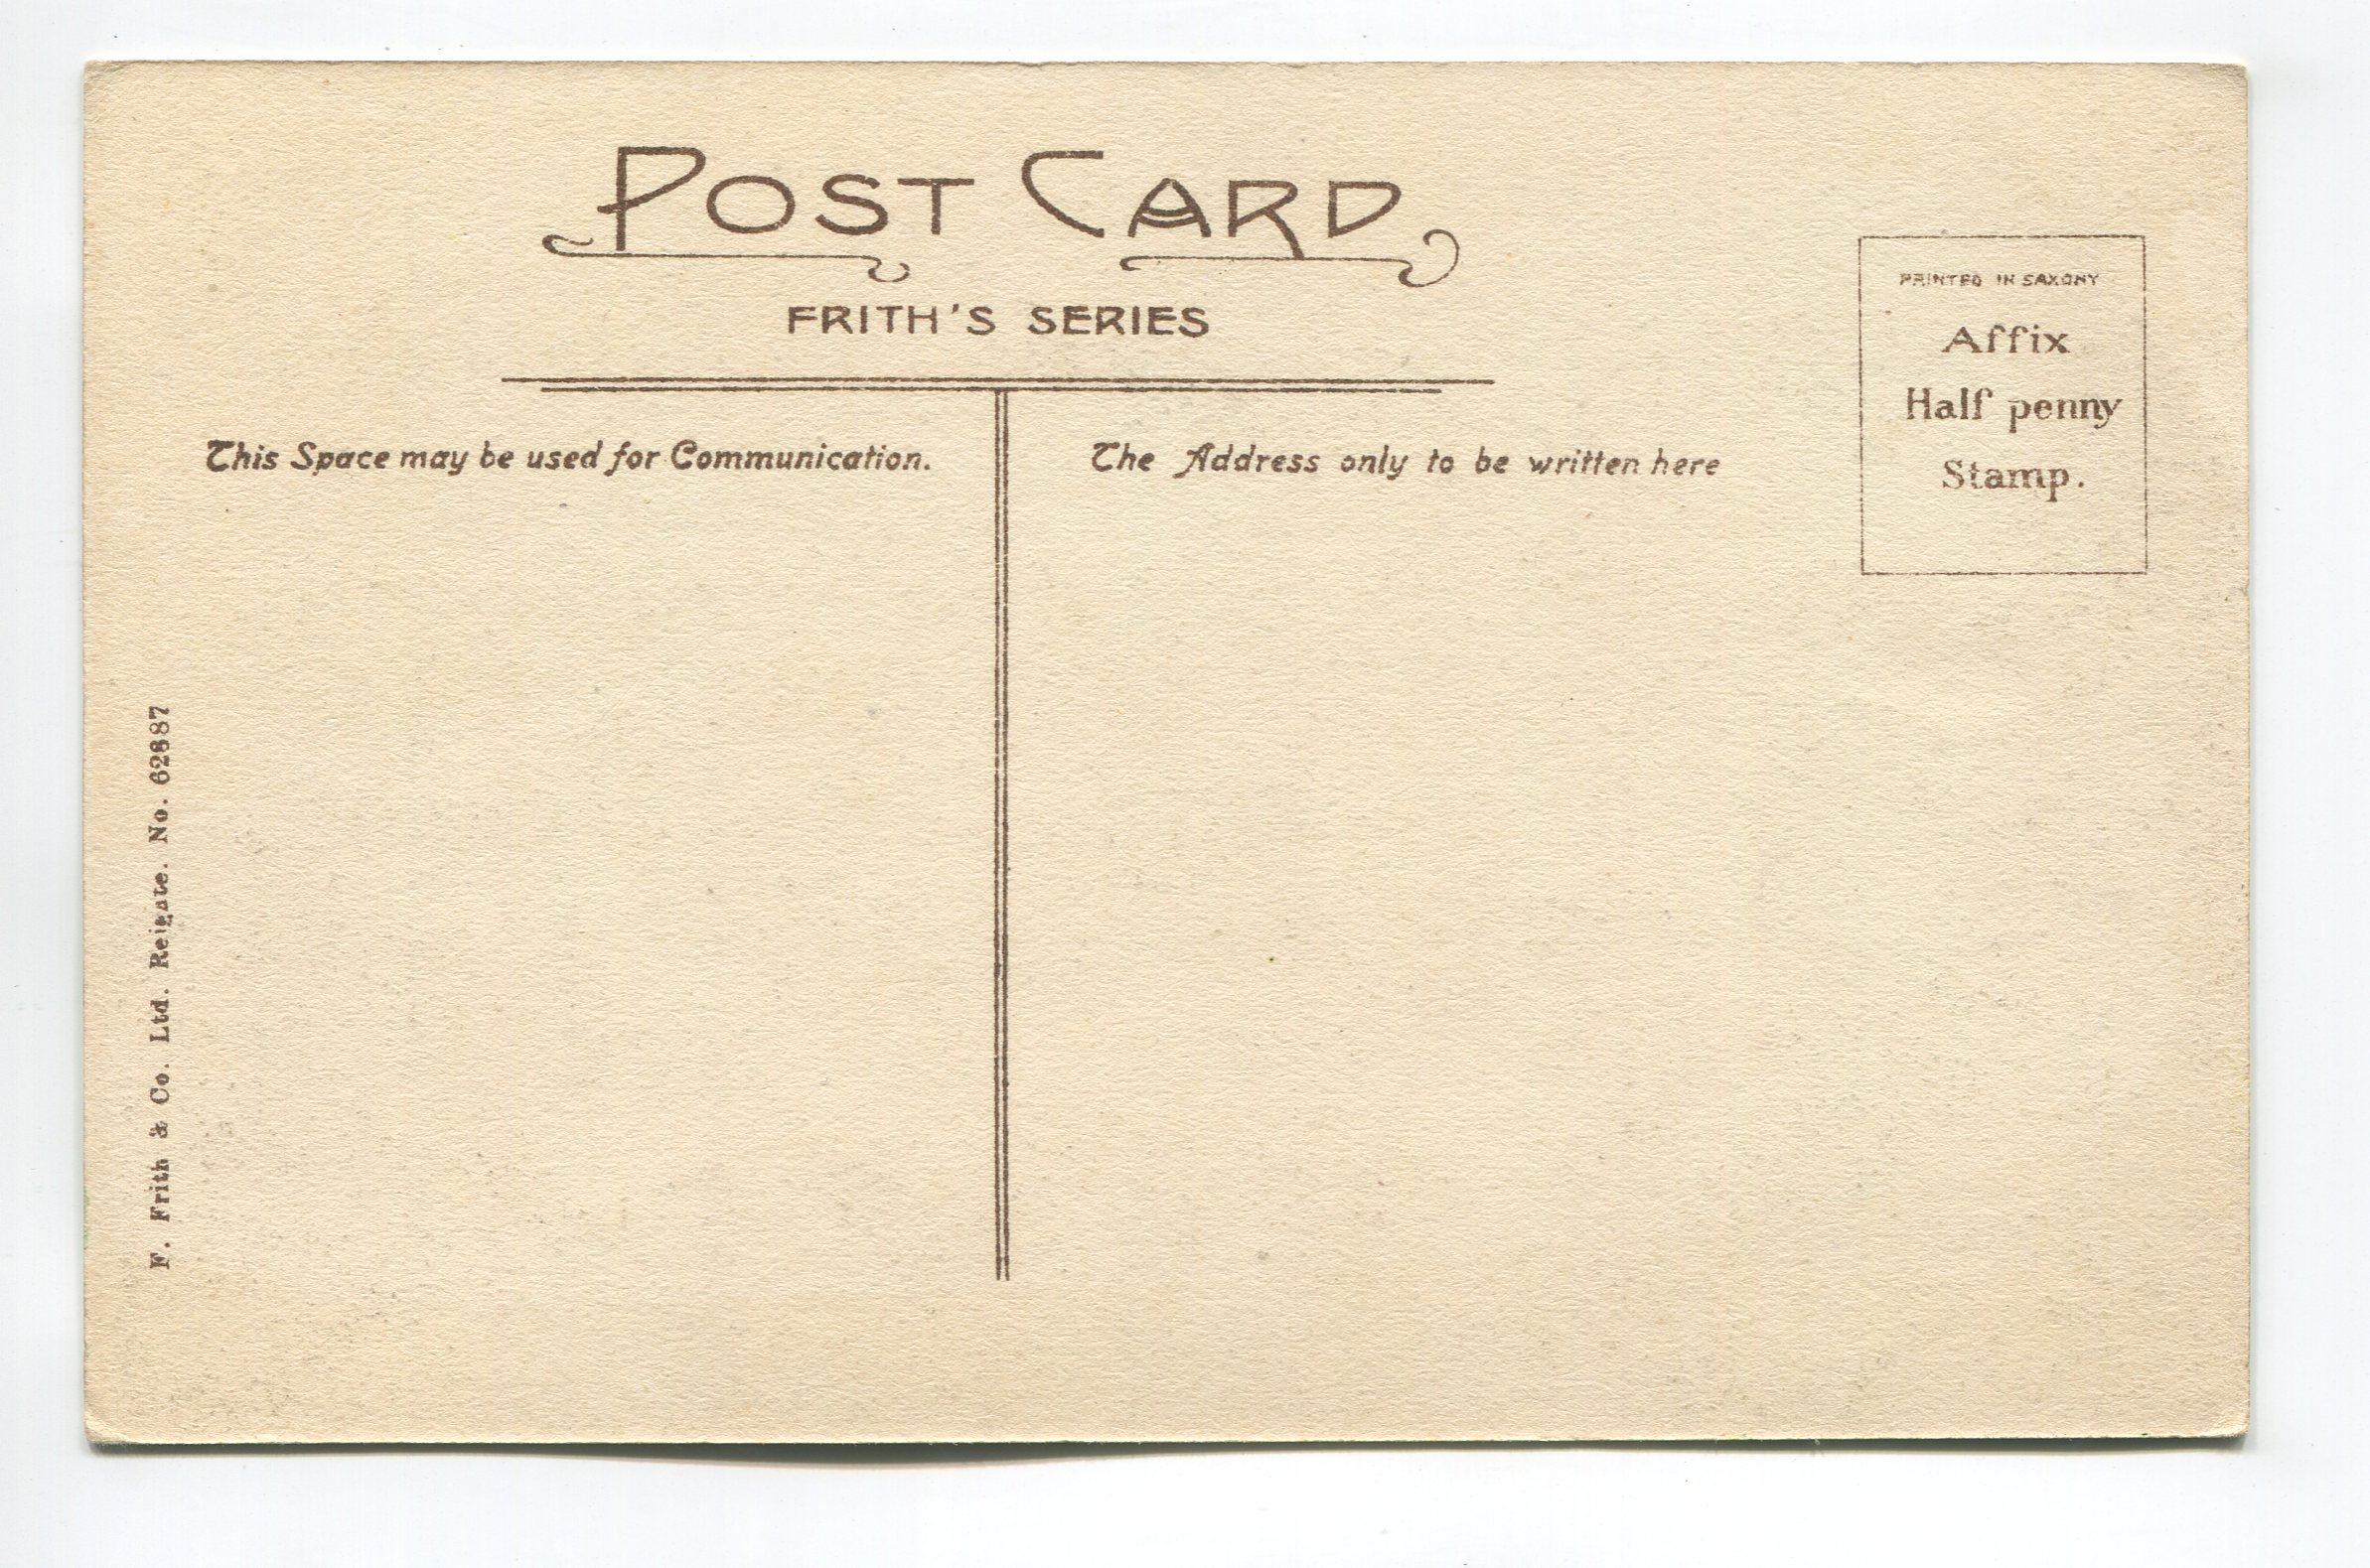 POST CARD
FRITH'S SERIES
PRINTED IN SAXONY
Affix
Half penny
Stamp.
This Space may be used for Communication.
The Address only to be written here
F. Frith & Co. Ltd. Reigate. No.